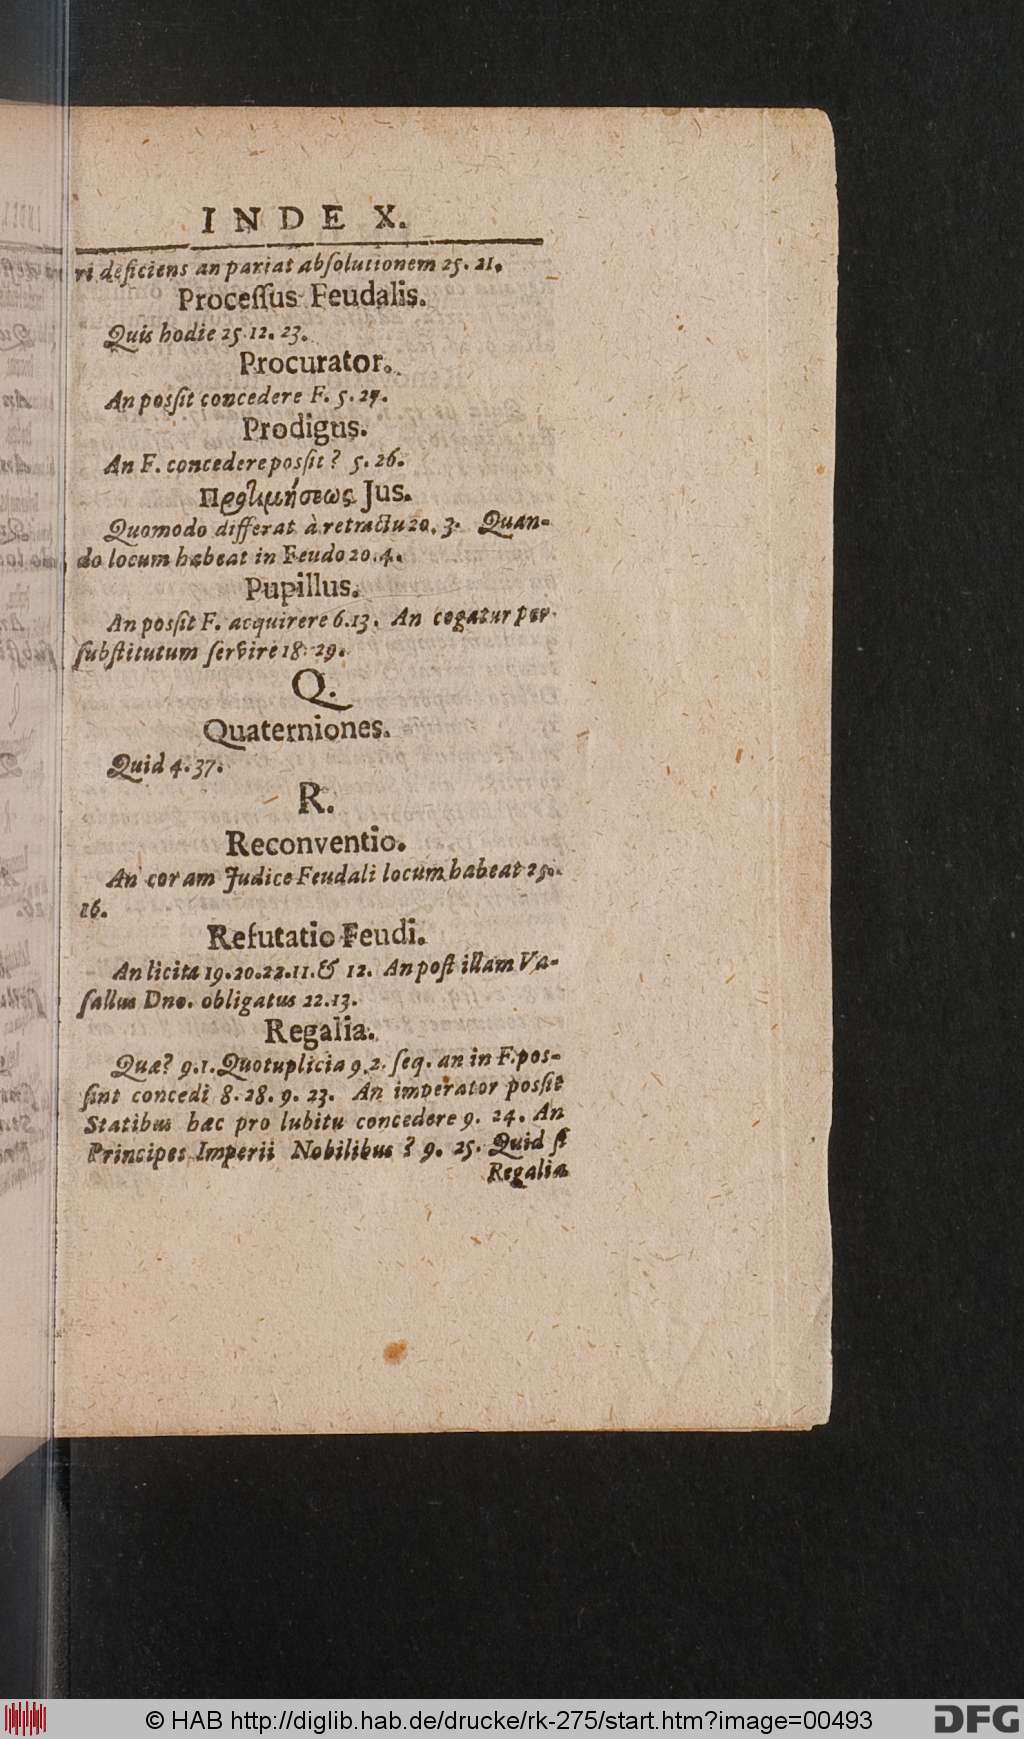 INDEX.
ri deficiens an pariat absolutionem 25. 21.
Proceſſus Feudalis.
Quis hodie 25. 12. 23.
Procurator.
An posſit concedere F. 5. 27.
Prodigus.
An F. concedere posſit? 5. 26.
Προτιμήσεως Jus.
Quomodo differat à retractu 20. 3. Quan-
do locum habeat in Feudo 20. 4.
Pupillus.
An posſit F. acquirere 6. 13. An cogatur per
ſubſtitutum ſervire 18. 29.
Q.
Quaterniones.
Quid 4. 37.
R.
Reconventio.
An coram Judice Feudali locum habeat 25.
16.
Refutatio Feudi.
An licita 19. 20. 22. 11. & 12. An poſt illam Va-
ſallus Dno. obligatus 22. 13.
Regalia.
Quæ? 9. 1. Quotuplicia 9. 2. ſeq. an in F. pos-
ſint concedi 8. 28. 9. 23. An imperator posſit
Statibus hæc pro lubitu concedere 9. 24. An
Principes Imperii Nobilibus? 9. 25. Quid ſi
Regalia
© HAB http://diglib.hab.de/drucke/rk-275/start.htm?image=00493
DFG